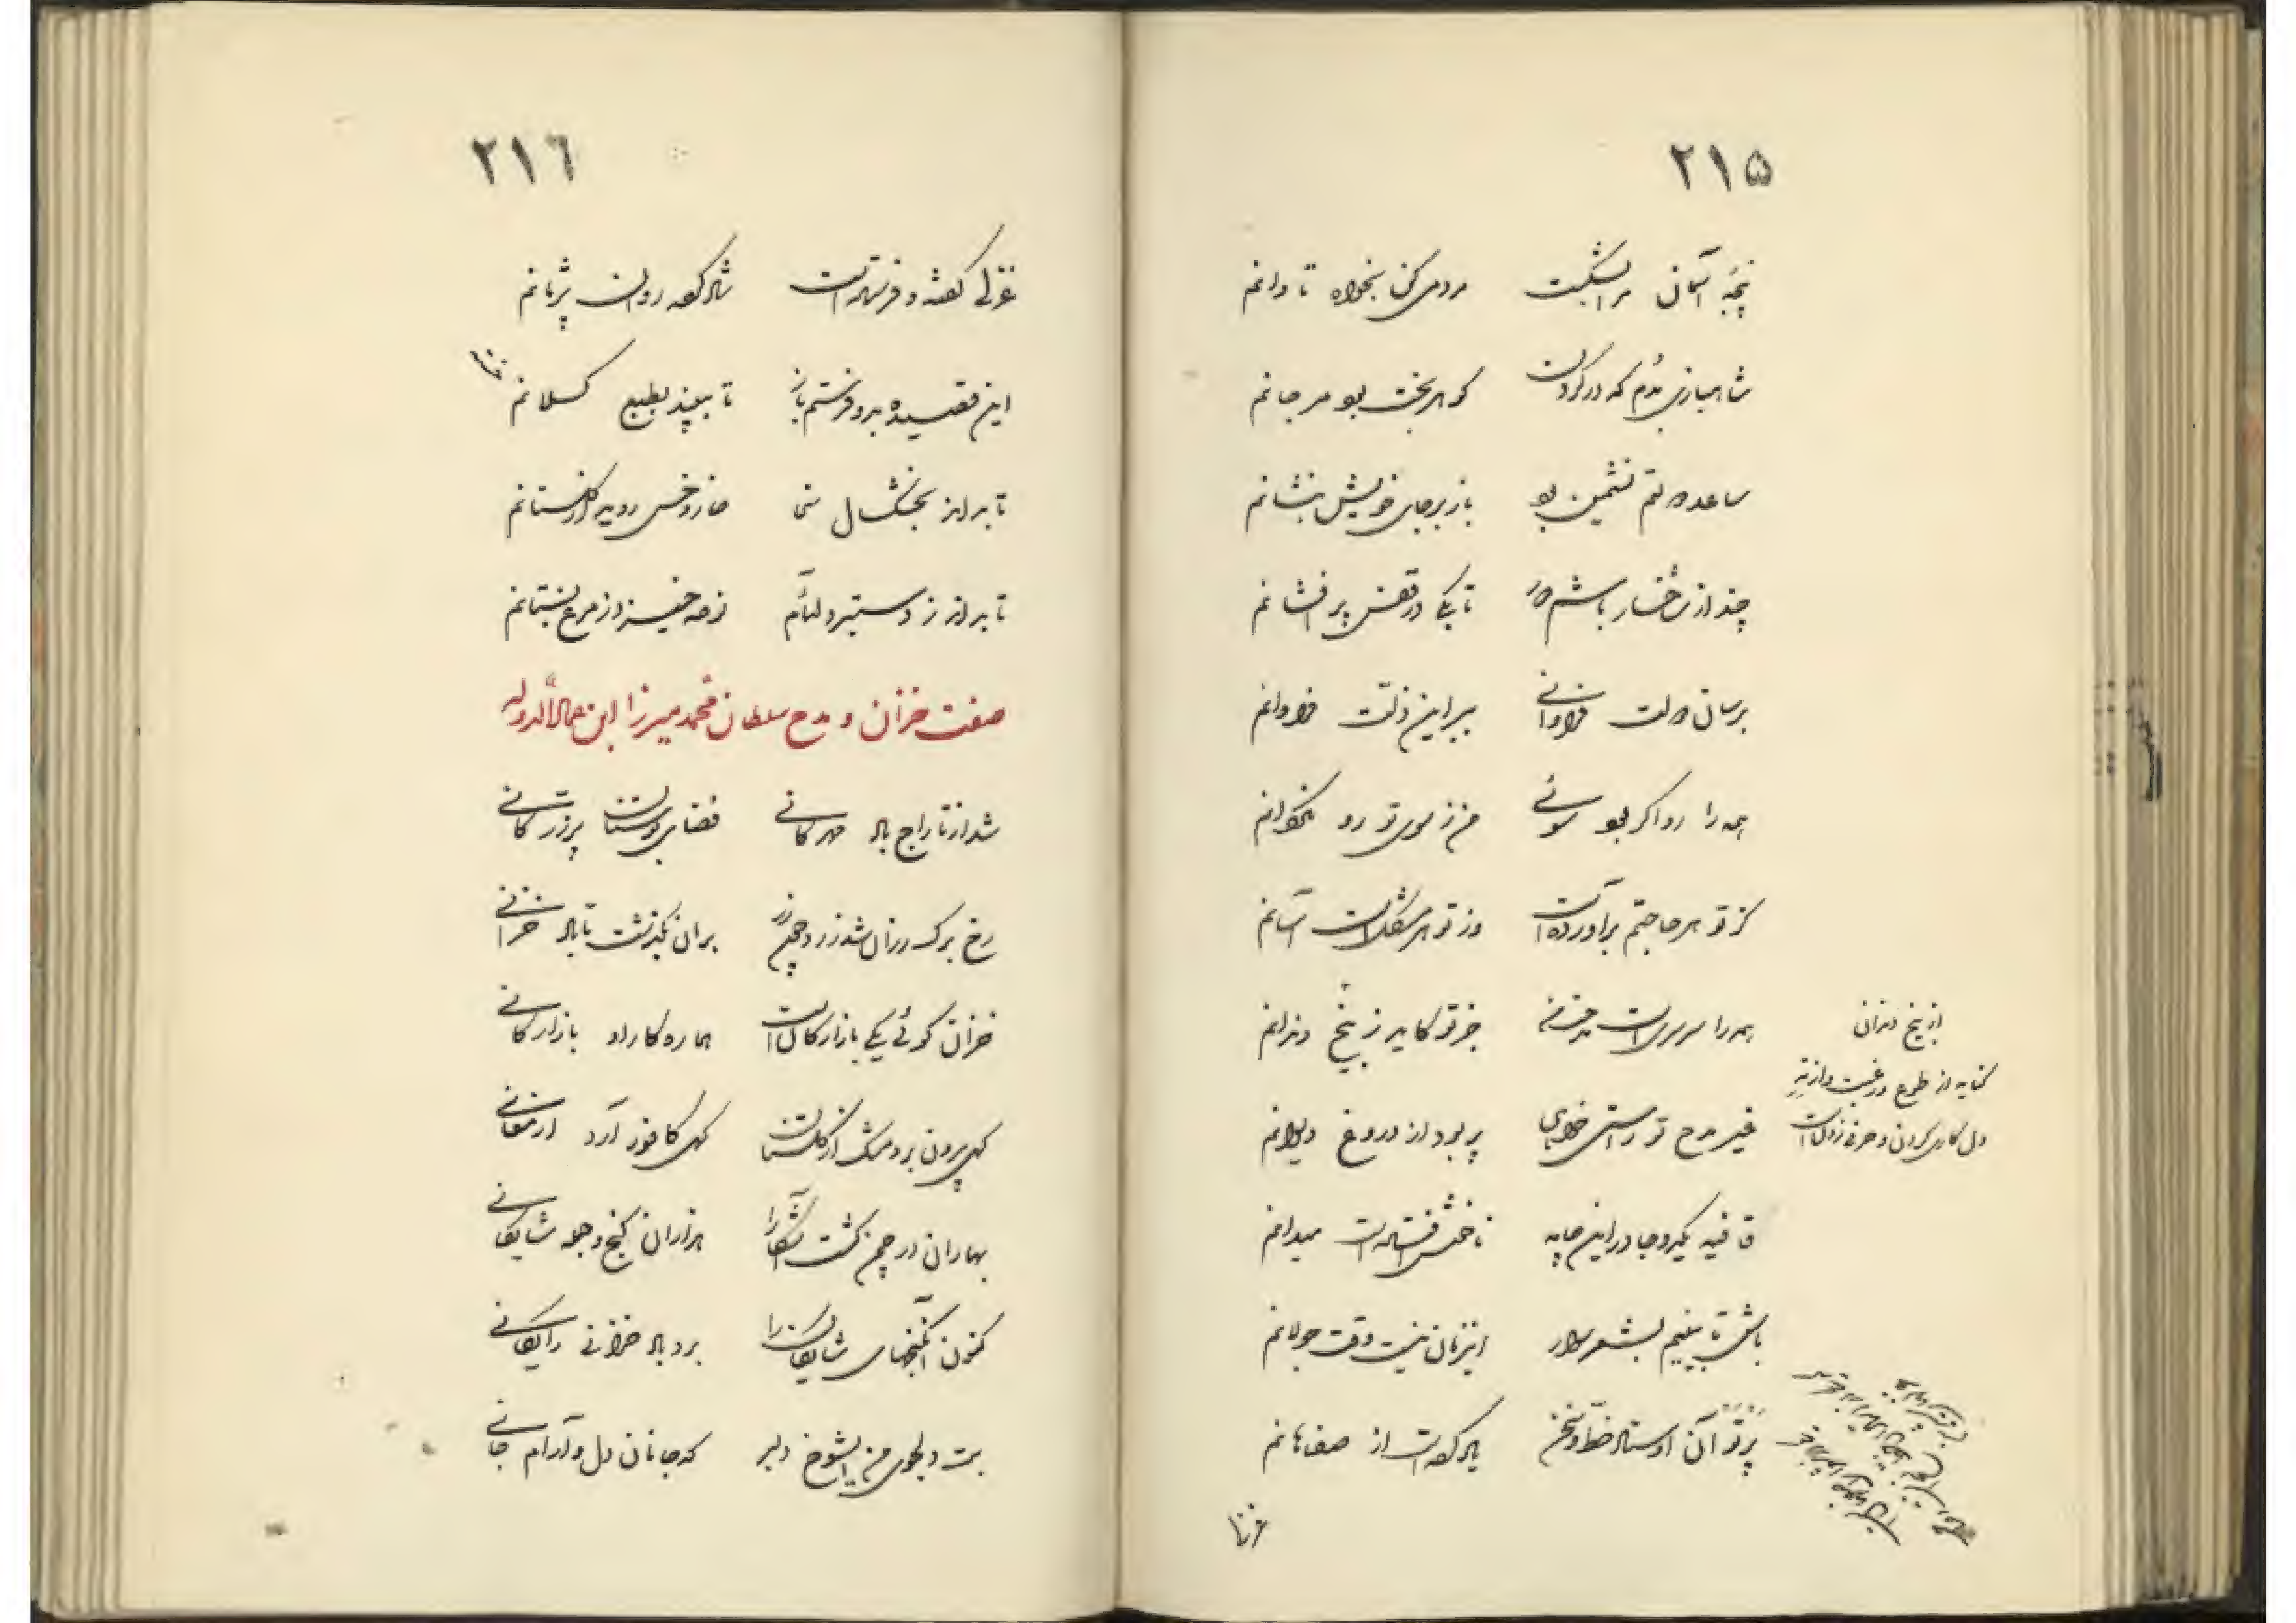 ۲۱۵
پنجهٔ آسمان مرا بشکست مردمی کن بخواه تاوانم
شاهبازی بدم که در گردن گوهر بخت بود مرجانم
ساعد دولتم نشیمن بود باز بر جای خویش بنشانم
چند از شاخسار باشم دور تا بکی در قفس پر افشانم
برسان دولت فراوانی بر این ذلت فراوانم
همه را رو اگر بود سوئی من ز سوی تو رو نگردانم
کز تو هر حاجتم برآورده است وز تو هر مشکل است آسانم
همه را سرسری است جز تو کاید ز بیخ دندانم
از بیخ دندان
کنایه از طوع و رغبت و از ته
دل کاری کردن و حرفی زدن است
غیر مدح تو راستی خواهی پر بود از دروغ دیوانم
قافیه یکدو جا در این چامه ناخوش افتاده است میدانم
باش تا بینیم بشعر سوار این زمان نیست وقت جولانم
پرتو آن اوستاد خط و سخن یاد کرده است از صفاهانم
غزلی
۲۱٦
غزلی گفته و فرستاده است شاد کرده روان پژمانم
این قصیده بدو فرستم باز تا ببیند بطبع کسلانم
تا بر از خار و خس روید از گلستانم
تا بر از زمزمه خیزد از مرغ بستانم
صفت خزان و مدح سلطان محمد میرزا ابن عمادالدوله
شد از تاراج باد مهرگانی فضای بوستان پر زر کانی
رخ برگ رزان شد زرد و چون زر بر آن بگذشت تا باد خزانی
خزان گوئی یکی بازارگان است هماره کار او بازارگانی
گهی بیرون برد مشک از گلستان گهی کافور آرد ارمغانی
بهاران در چمن گشت آشکارا هزاران گنج و جمله شایگانی
کنون آن گنجهای شایگان را برد باد خزانی رایگانی
بت دلجوی من ای شوخ دلبر که جانان دل و آرام جانی